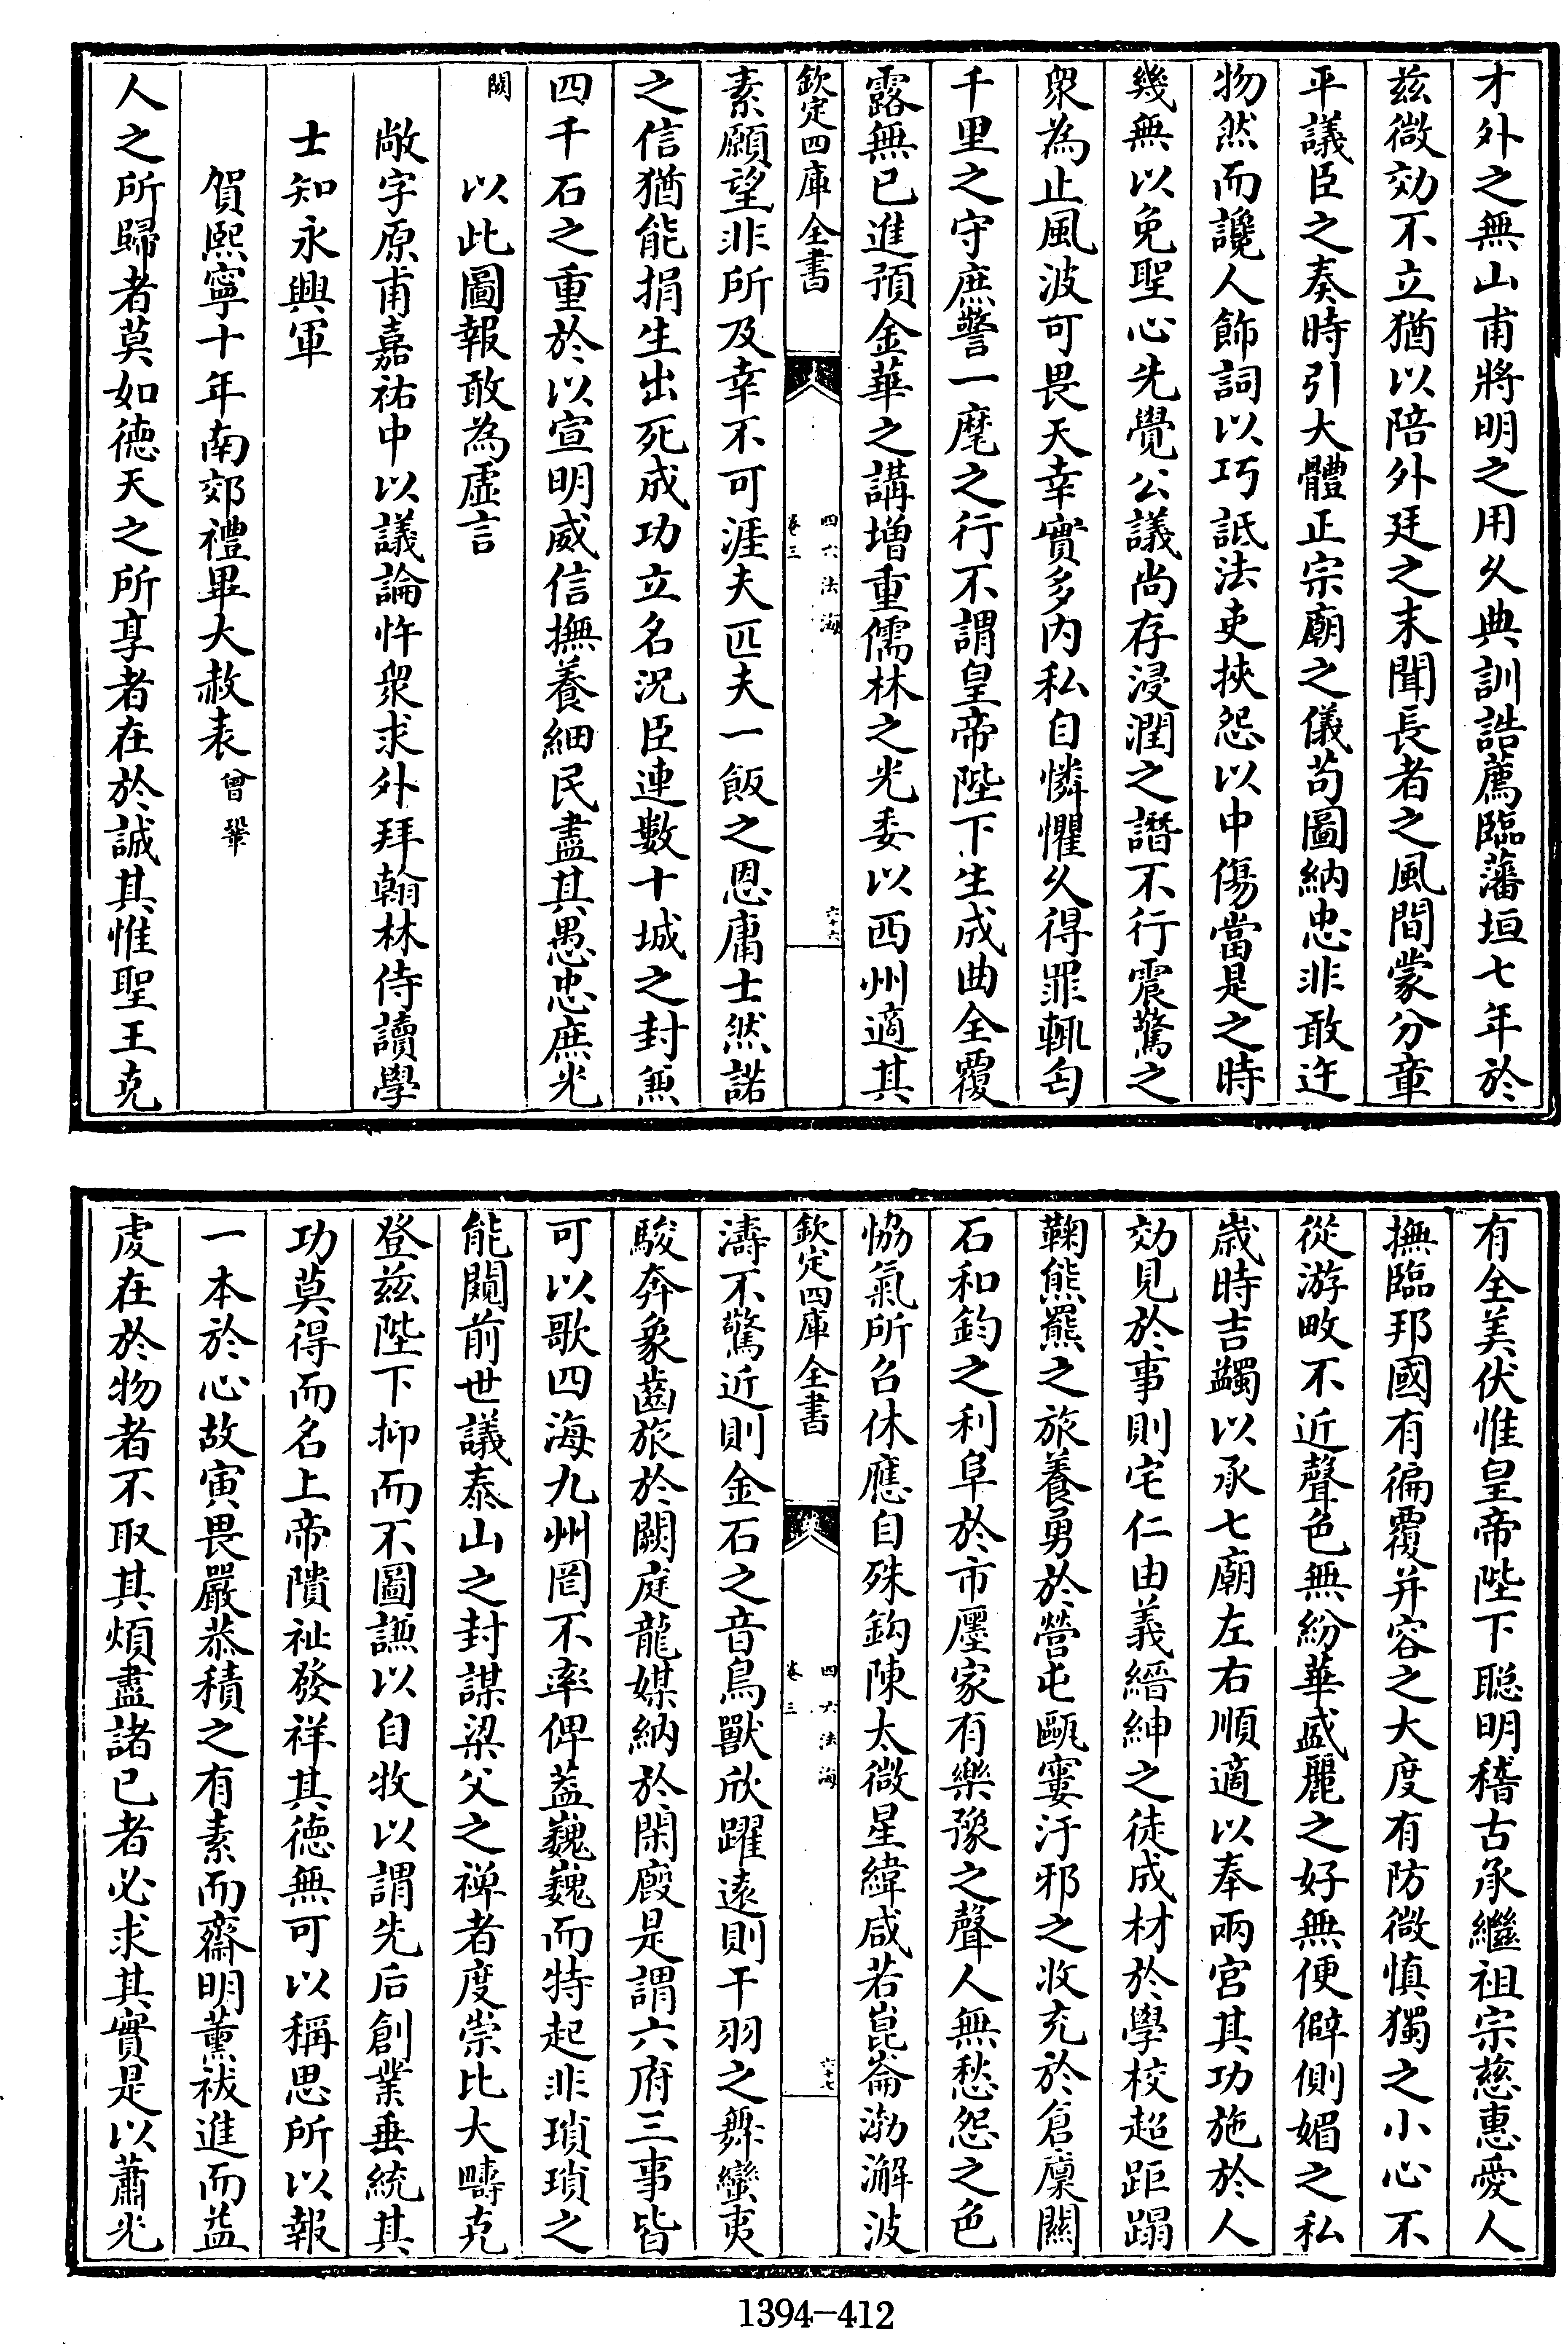 才外之無山甫將明之用久典訓誥薦臨藩垣七年於
兹微効不立猶以陪外廷之末聞長者之風間蒙分章
平議臣之奏時引大體正宗廟之儀苟圖納忠非敢迕
物然而讒人飾詞以巧詆法吏挾怨以中傷當是之時
幾無以免聖心先覺公議尚存浸潤之譖不行震驚之
衆為止風波可畏天幸實多内私自憐懼久得罪輒匄
千里之守庶警一麾之行不謂皇帝陛下生成曲全覆
露無已進預金華之講増重儒林之光委以西州適其
欽定四庫全書
四六法海
卷三
六十六
素願望非所及幸不可涯夫匹夫一飯之恩庸士然諾
之信猶能捐生出死成功立名况臣連數十城之封兼
四千石之重於以宣明威信撫養細民盡其愚忠庶光
闕
以此圖報敢為虛言
敞字原甫嘉祐中以議論忤衆求外拜翰林侍讀學
士知永興軍
賀熙寧十年南郊禮畢大赦表曾鞏
人之所歸者莫如德天之所享者在於誠其惟聖王克
有全美伏惟皇帝陛下聰明稽古承繼祖宗慈惠愛人
撫臨邦國有徧覆并容之大度有防微慎獨之小心不
從游畋不近聲色無紛華盛麗之好無便僻側媚之私
嵗時吉蠲以承七廟左右順適以奉兩宮其功施於人
効見於事則宅仁由義縉紳之徒成材於學校超距蹋
鞠熊羆之旅養勇於營屯甌窶汙邪之收充於倉廩關
石和鈞之利阜於市廛家有樂豫之聲人無愁怨之色
恊氣所召休應自殊鈎陳太微星緯咸若崑崙渤澥波
欽定四庫全書
四六法海
卷三
六十七
濤不驚近則金石之音鳥獸欣躍遠則干羽之舞蠻夷
駿奔象齒旅於闕庭龍媒納於閑廐是謂六府三事皆
可以歌四海九州罔不率俾蓋巍巍而特起非瑣瑣之
能闚前世議泰山之封謀梁父之禪者度崇比大疇克
登兹陛下抑而不圖謙以自牧以謂先后創業垂統其
功莫得而名上帝隤祉發祥其德無可以稱思所以報
一本於心故寅畏嚴恭積之有素而齋明薫祓進而益
䖍在於物者不取其煩盡諸已者必求其實是以蕭光
1394-412